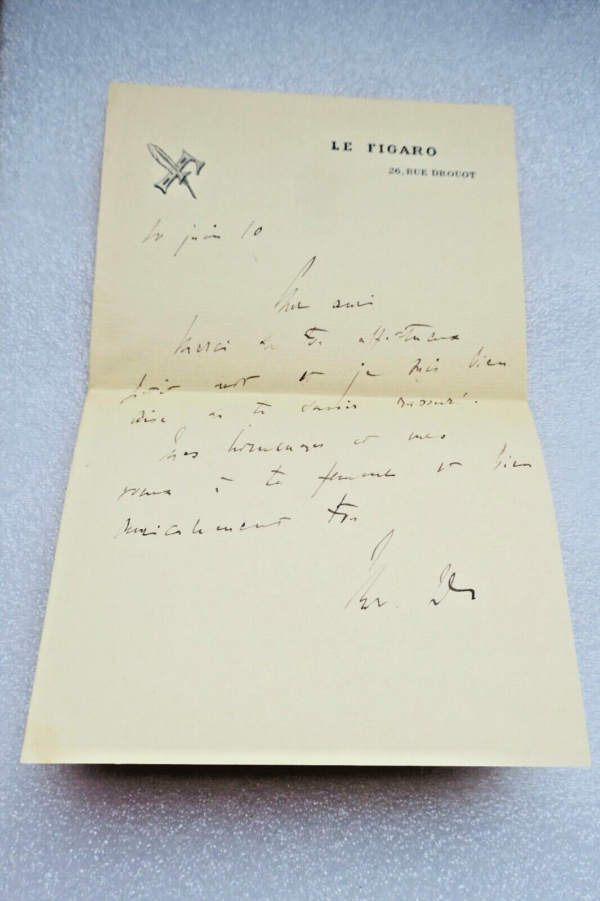 LE FIGARO
26, RUE DROUOT
10 juin 10
Cher ami
Merci de ton affectueux
petit mot et je suis bien
aise de te savoir rassuré.
Mes hommages et mes
vœux à ta femme et bien
amicalement ton